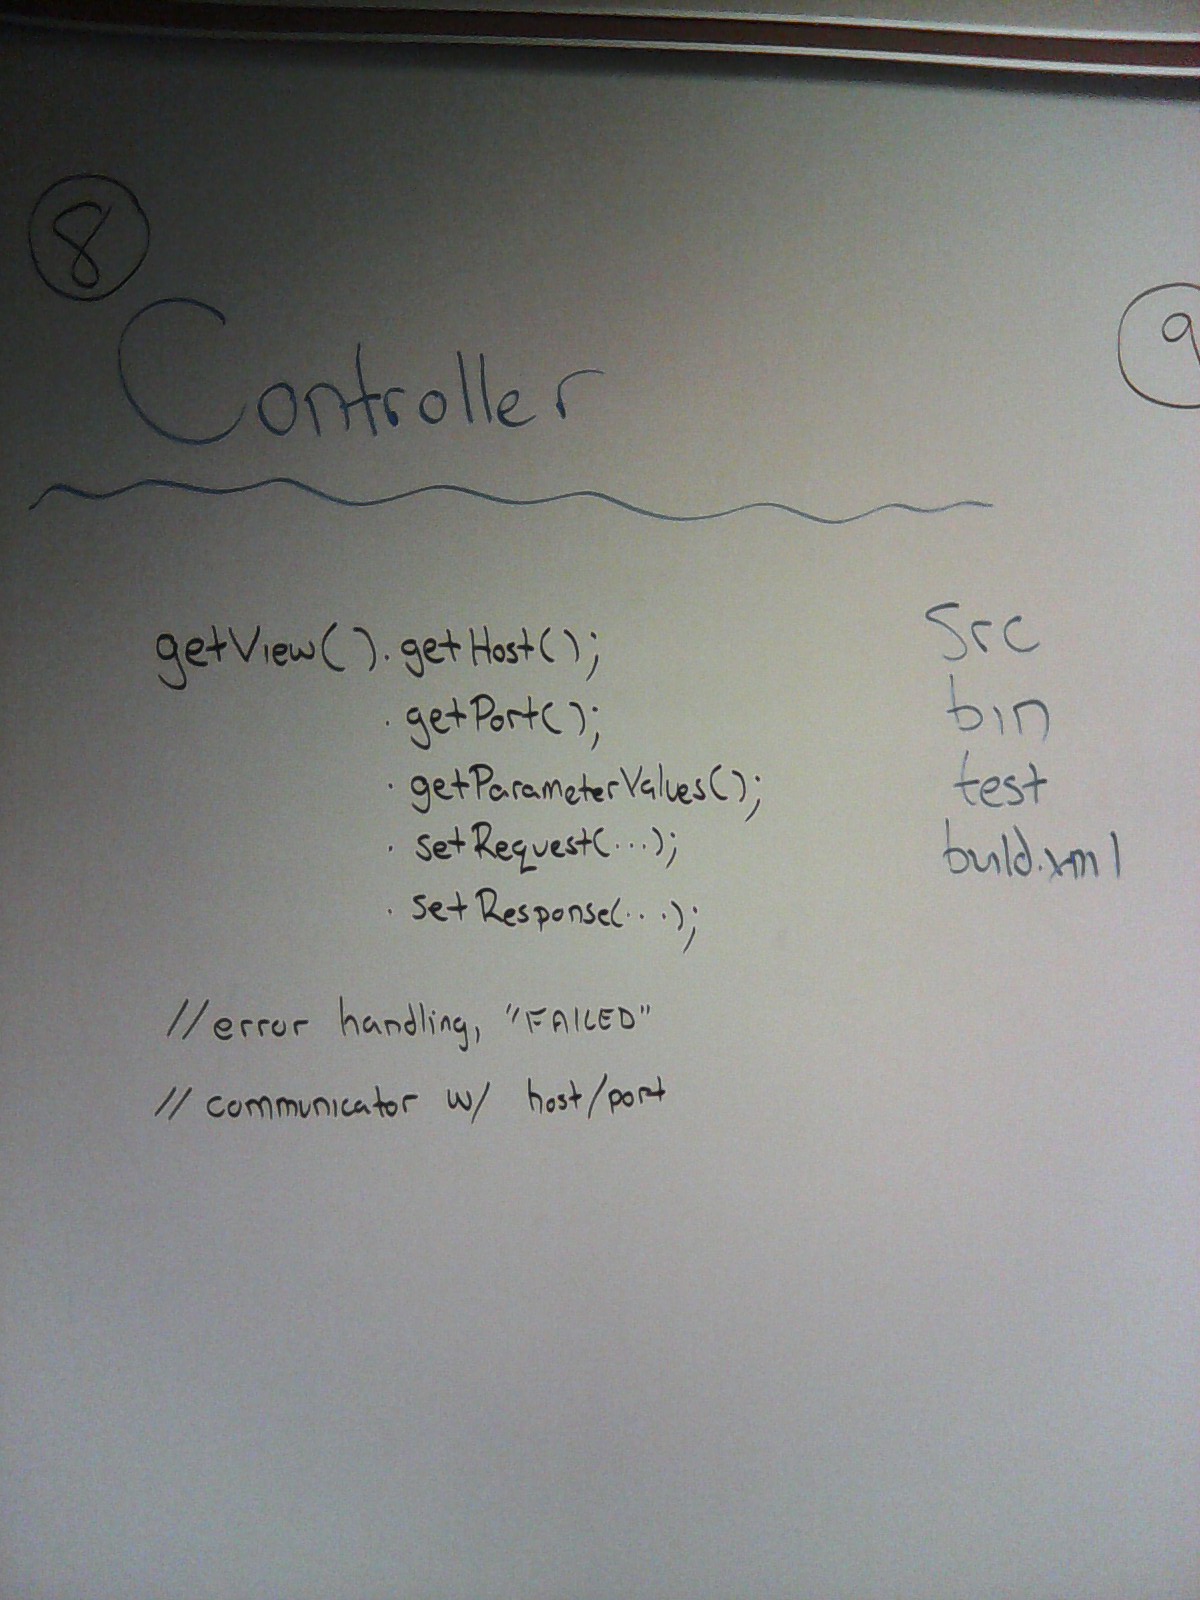 8
9
Controller
getView().getHost();
.getPort();
.getParameterValues();
.setRequest(...);
.setResponse(...);
//error handling, "FAILED"
// communicator w/ host/port
src
bin
test
build.xml